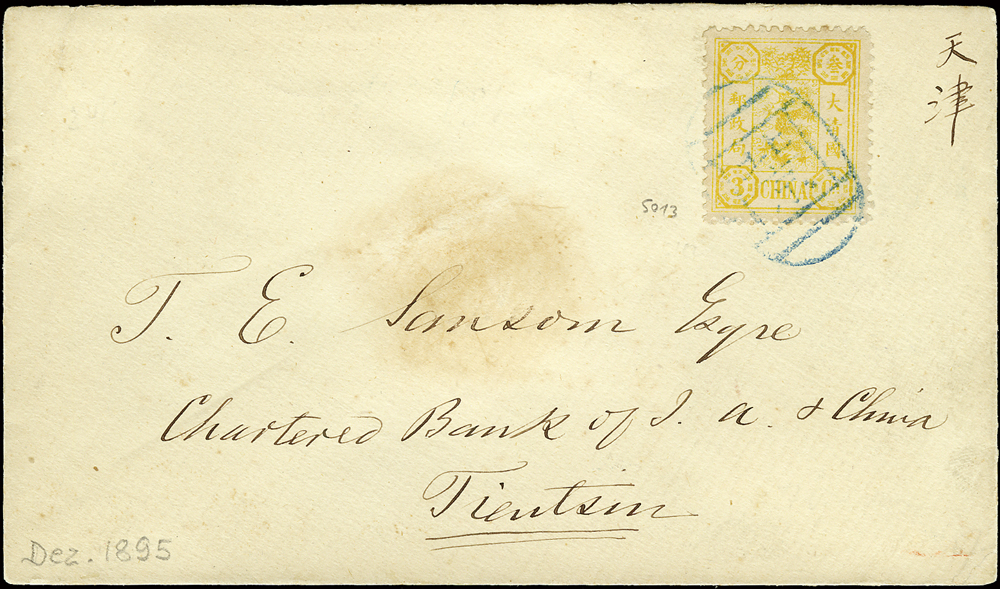 天津
分 叁
大清國
郵政局
3 CHINA C
5013
T. E. Sansom Esqre
Chartered Bank of I. A. & China
Tientsin
Dez. 1895